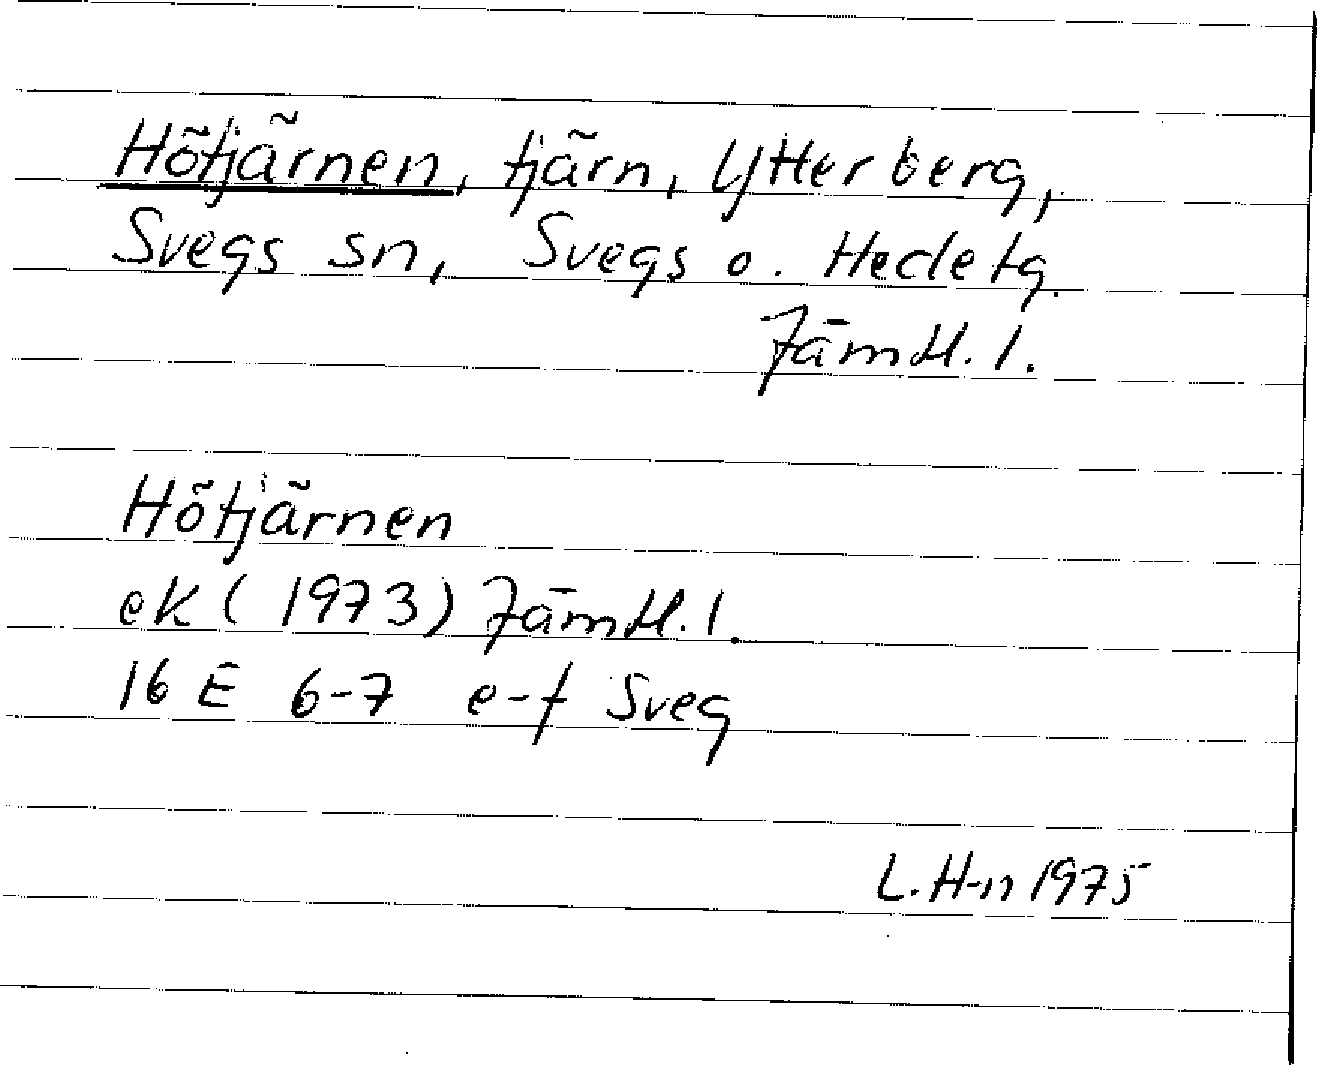 Hötjärnen, tjärn, Ytterberg,
Svegs sn, Svegs o. Hede tg.
Jämtl. l.
Hötjärnen
ek (1973) Jämtl. l.
16 E 6-7 e-f Sveg
L. H-n 1975